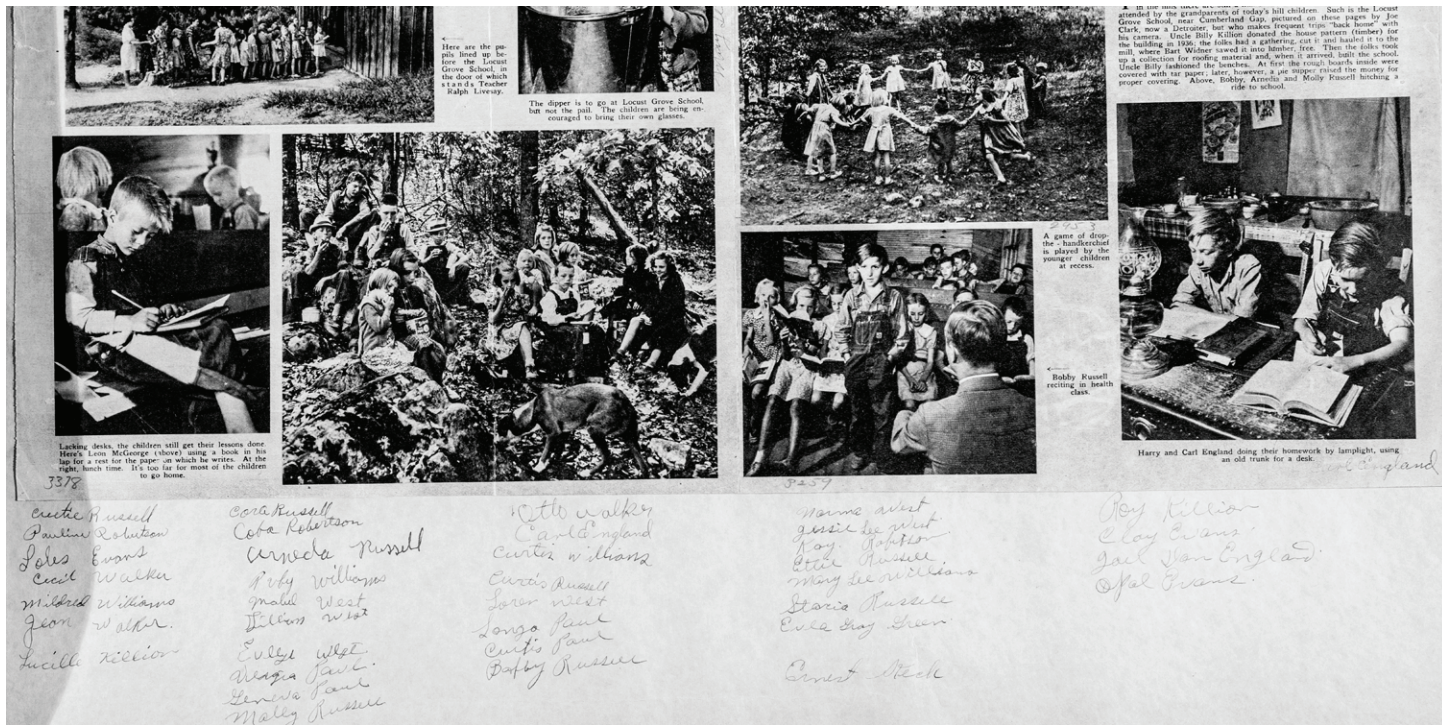 Here are the pu-
pils lined up be-
fore the Locust
Grove School, in
the door of which
stands Teacher
Ralph Livesay.
The dipper is to go at Locust Grove School,
but not the pail. The children are being en-
couraged to bring their own glasses.
attended by the grandparents of today's hill children. Such is the Locust
Grove School, near Cumberland Gap, pictured on these pages by Joe
Clark, now a Detroiter, but who makes frequent trips "back home" with
his camera. Uncle Billy Killion donated the house pattern (timber) for
the building in 1936; the folks had a gathering, cut it and hauled it to the
mill, where Bart Widner sawed it into lumber, free. Then the folks took
up a collection for roofing material and, when it arrived, built the school.
Uncle Billy fashioned the benches. At first the rough boards inside were
covered with tar paper; later, however, a pie supper raised the money for
proper covering. Above, Bobby, Arneda and Molly Russell hitching a
ride to school.
Lacking desks, the children still get their lessons done.
Here's Leon McGeorge (above) using a book in his
lap for a rest for the paper on which he writes. At the
right, lunch time. It's too far for most of the children
to go home.
3378
2453
A game of drop-
the-handkerchief
is played by the
younger children
at recess.
Bobby Russell
reciting in health
class.
3259
Harry and Carl England doing their homework by lamplight, using
an old trunk for a desk.
Carl England
Russell
Pauline Robertson
Evans
Cecil Walker
Mildred Williams
Jean Walker.
Lucille Killion
Cora Russell
Coba Robertson
Arneda Russell
Ruby Williams
Mabel West
West
West
Paul.
Geneva Paul
Molly Russell
Walker
Carl England
Curtis Williams
Curtis Russell
Loren West
Paul
Curtis Paul
Bobby Russell
Norma West
Jessie Lee West
Ray
Russell
Mary Lee Williams
Russell
Eula Gray Green
Ernest
Roy Killion
Clay Evans
Gail Don England
Opal Evans.